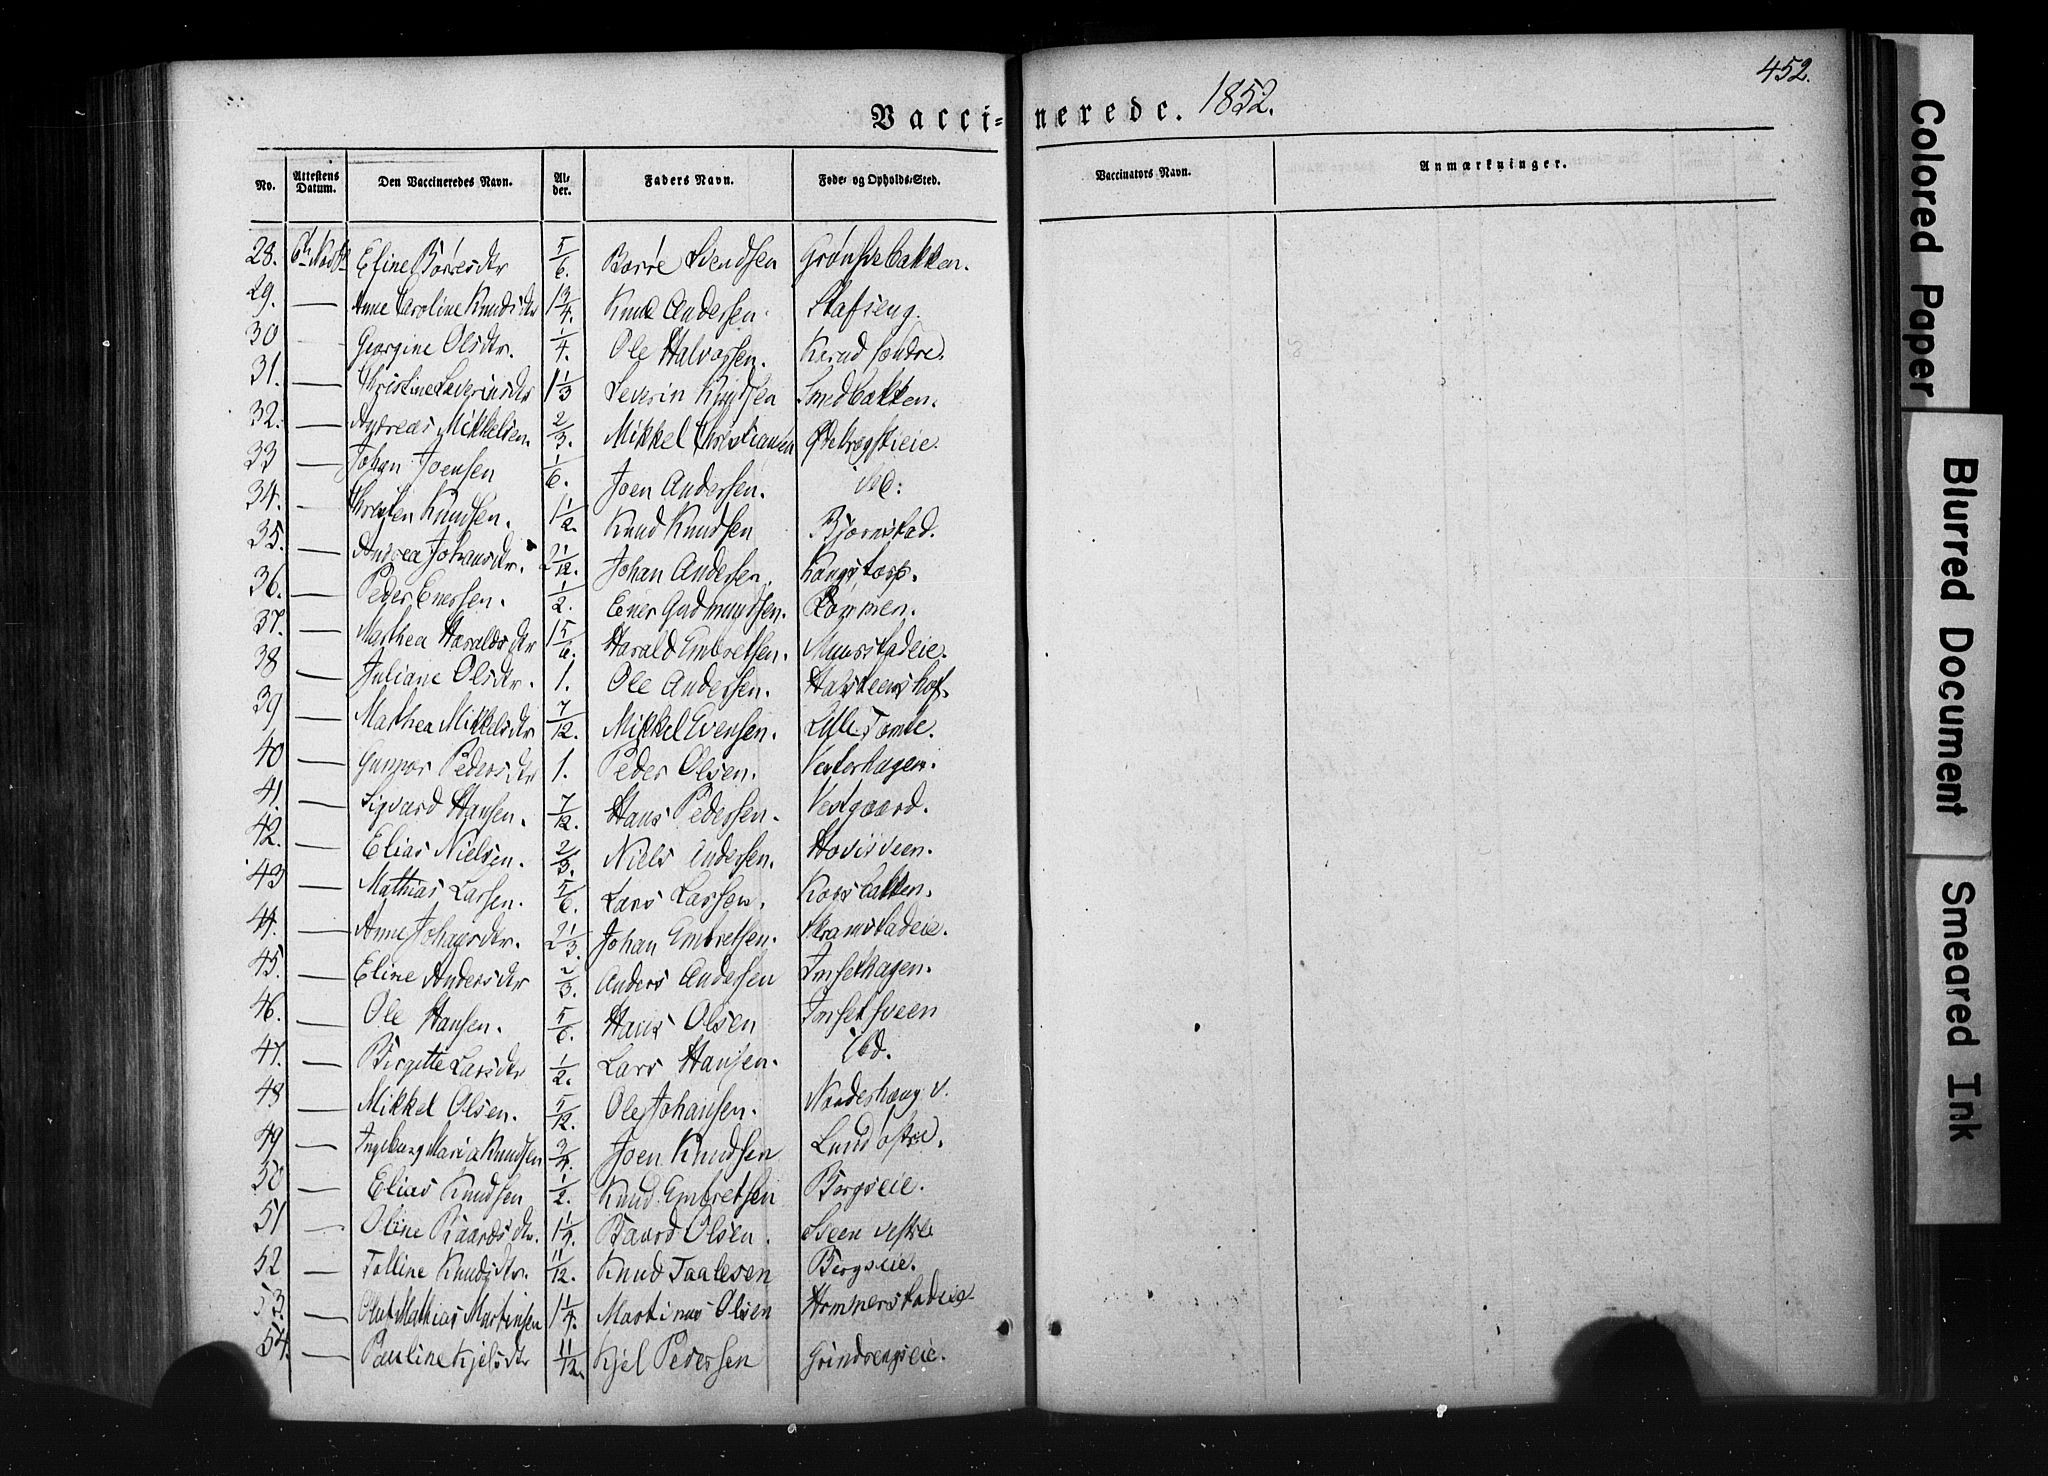 452.
Vaccinerede. 1852.
No. Attestens Datum. Den Vaccineredes Navn. Alder. Faders Navn. Føde- og Opholds-Sted. Vaccinators Navn. Anmærkninger.
28. Eline Børresdtr 5/6. Børre Svendsen
29. — Anne Caroline Knudsdtr 1 3/4. Knud Andersen. Stafseng.
30 — Georgine Olsdtr. 1/4. Ole Halvorsen. Kerud søndre.
31. — Christine Severinsdtr 1 1/3 Severin Knudsen Smedbakken.
32. — Andreas Mikkelsen. 2/3. Mikkel Christiansen
33 — Johan Joensen 1/6. Joen Andersen. ibid:
34. — Christen Knudsen. 1 1/2. Knud Knudsen Bjørnstad.
35. — Andrea Johansdtr. 2 1/12. Johan Andersen. Kongstorp.
36. — Peder Enersen. 1/2. Ener Gudmundsen. Rømmen.
37. — Marthea Haraldsdtr 1 5/6. Harald Embretsen. Muustadeie.
38 — Juliane Olsdtr. 1. Ole Andersen. Halsteenshof.
39 — Mathea Mikkelsdtr 7/12. Mikkel Evensen. Lille Tomte.
40 — Gunnor Pedersdtr 1. Peder Olsen. Vesterhagen.
41. — Sigvard Hansen. 7/12. Hans Pedersen. Vestgaard.
42. — Elias Nielsen. 2/3. Niels Andersen. Hovisveen.
43 — Mathias Larsen. 5/6. Lars Larsen. Korsbakken.
44. — Anne Johansdtr. 2 1/3. Johan Embretsen. Skramstadeie.
45. — Eline Andersdtr 2/3. Anders Andersen Imsethagen.
46. — Ole Hansen. 5/6. Hans Olsen Imsetsveen
47. — Birgitte Larsdtr 1/2. Lars Hansen. ibd.
48 — Mikkel Olsen. 5/12. Ole Johansen. Norderhaug v.
49 — Ingeborg Maria Knudsen 3/4. Joen Knudsen Lund østre.
50 — Elias Knudsen 1/2. Knud Embretsen Bergseie.
51 — Oline Baardsdtr. 1 1/4. Baard Olsen. Steen vestre
52 — Talline Knudsdtr. 11/12. Knud Taalesen Bergseie.
53. — Oluf Mathias Martinsen 1 1/4. Martinus Olsen Hommerstadeie
54. — Pauline Kjelsdtr 11/12. Kjel Pedersen Grindrengseie.
Colored Paper
Blurred Document
Smeared Ink